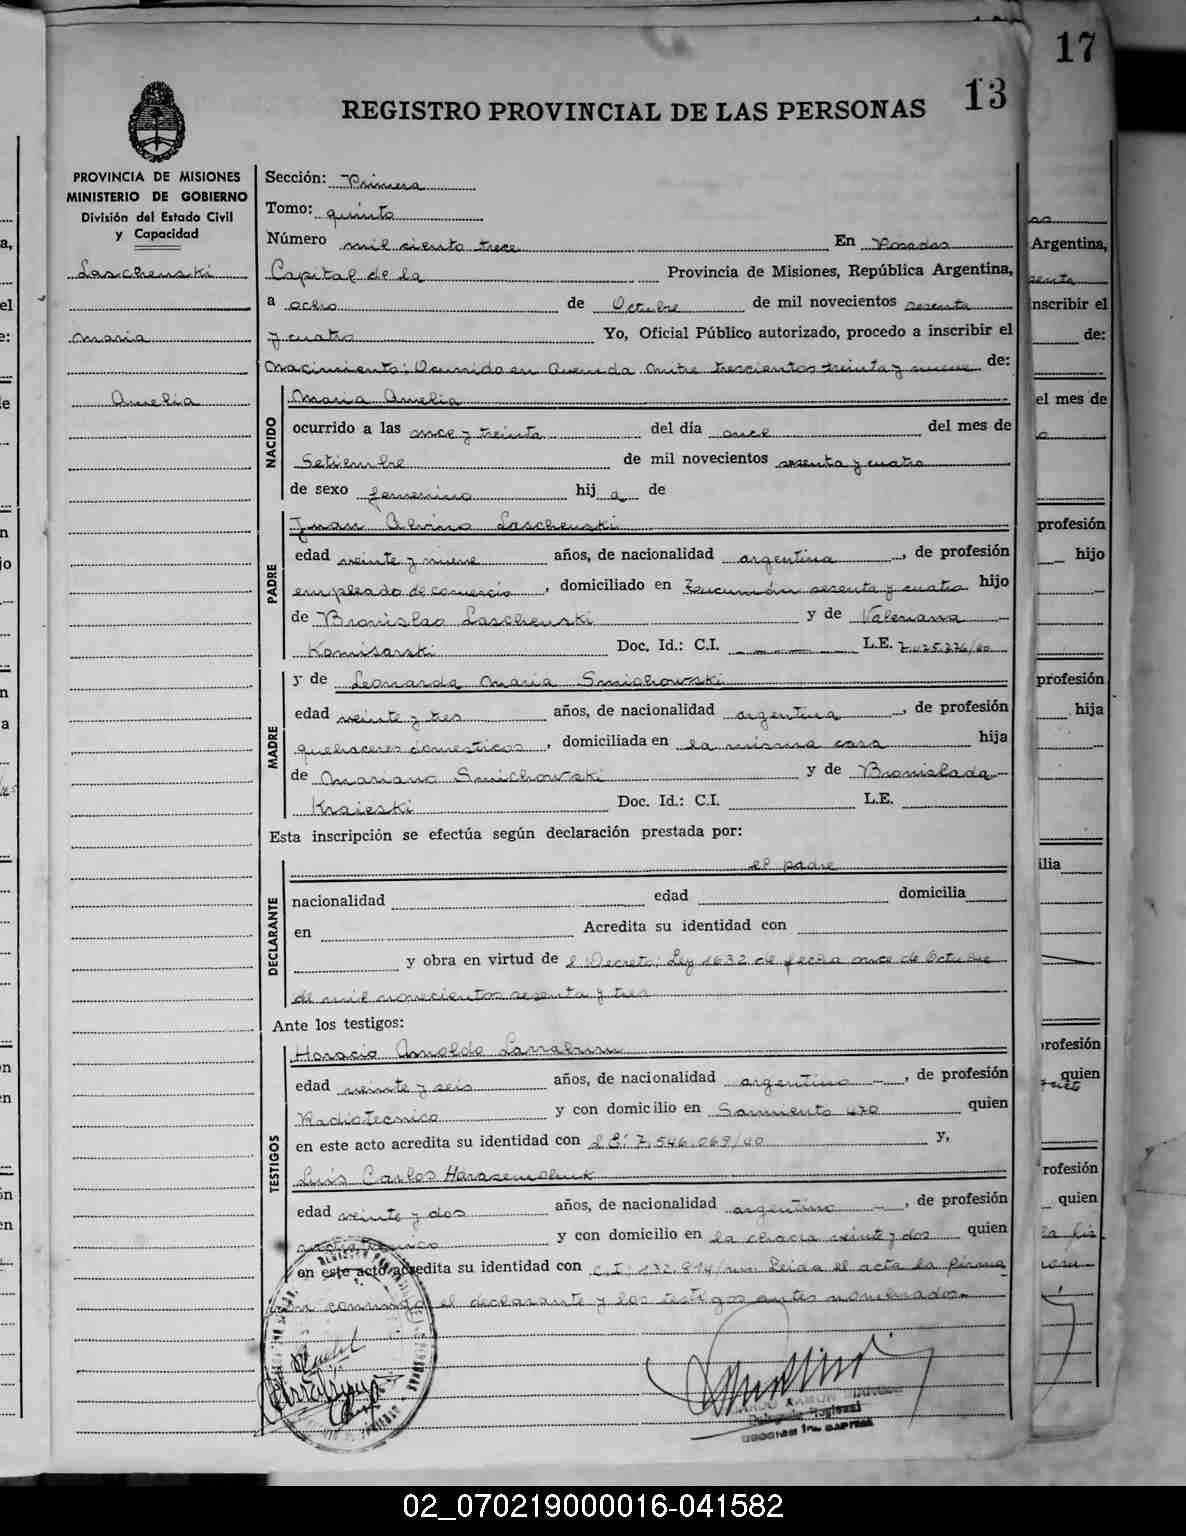 17
13
REGISTRO PROVINCIAL DE LAS PERSONAS
PROVINCIA DE MISIONES
MINISTERIO DE GOBIERNO
División del Estado Civil
y Capacidad
Laschenski
Maria
Amelia
Sección: Primera
Tomo: quinto
Número mil ciento trece En Posadas
Capital de la Provincia de Misiones, República Argentina,
a ocho de Octubre de mil novecientos sesenta
y cuatro Yo, Oficial Público autorizado, procedo a inscribir el
Nacimiento; Ocurrido en Avenida Mitre trescientos treinta y nueve de:
NACIDO
Maria Amelia
ocurrido a las once y treinta del día once del mes de
Setiembre de mil novecientos sesenta y cuatro
de sexo femenino hij a de
PADRE
Juan Alvino Laschenski
edad veinte y nueve años, de nacionalidad argentina, de profesión
empleado de comercio, domiciliado en Tucumán sesenta y cuatro hijo
de Bronislao Laschenski y de Valeriana
Komisarski Doc. Id.: C.I. L.E. 7.025.276/40
MADRE
y de Leonarda Maria Smichowski
edad veinte y tres años, de nacionalidad argentina, de profesión
quehaceres domesticos, domiciliada en la misma casa hija
de Mariano Smichowski y de Bronislada
Kraieski Doc. Id.: C.I. L.E.
Esta inscripción se efectúa según declaración prestada por:
DECLARANTE
el padre
nacionalidad edad domicilia
en Acredita su identidad con
y obra en virtud de l Decreto; Ley 1632 de fecha once de Octubre
de mil novecientos sesenta y tres
Ante los testigos:
TESTIGOS
Horacio Arnoldo Larraburu
edad veinte y seis años, de nacionalidad argentino, de profesión
Radiotecnico y con domicilio en Sarmiento 470 quien
en este acto acredita su identidad con L.E: 7.546.069/40 y,
Luis Carlos Harasemchuk
edad veinte y dos años, de nacionalidad argentino, de profesión
y con domicilio en la chacra veinte y dos quien
en este acto acredita su identidad con C.I: 132.814/ Leida el acta la firma
n conmigo el declarante y los testigos antes nombrados.
Argentina,
inscribir el
de:
el mes de
profesión
hijo
profesión
hija
ilia
profesión
quien
rofesión
quien
02_070219000016-041582